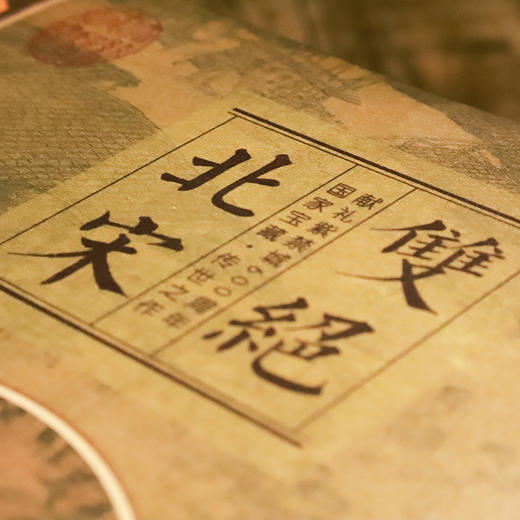 雙絕
献礼紫禁城600周年
国家宝藏·传世之作
北宋